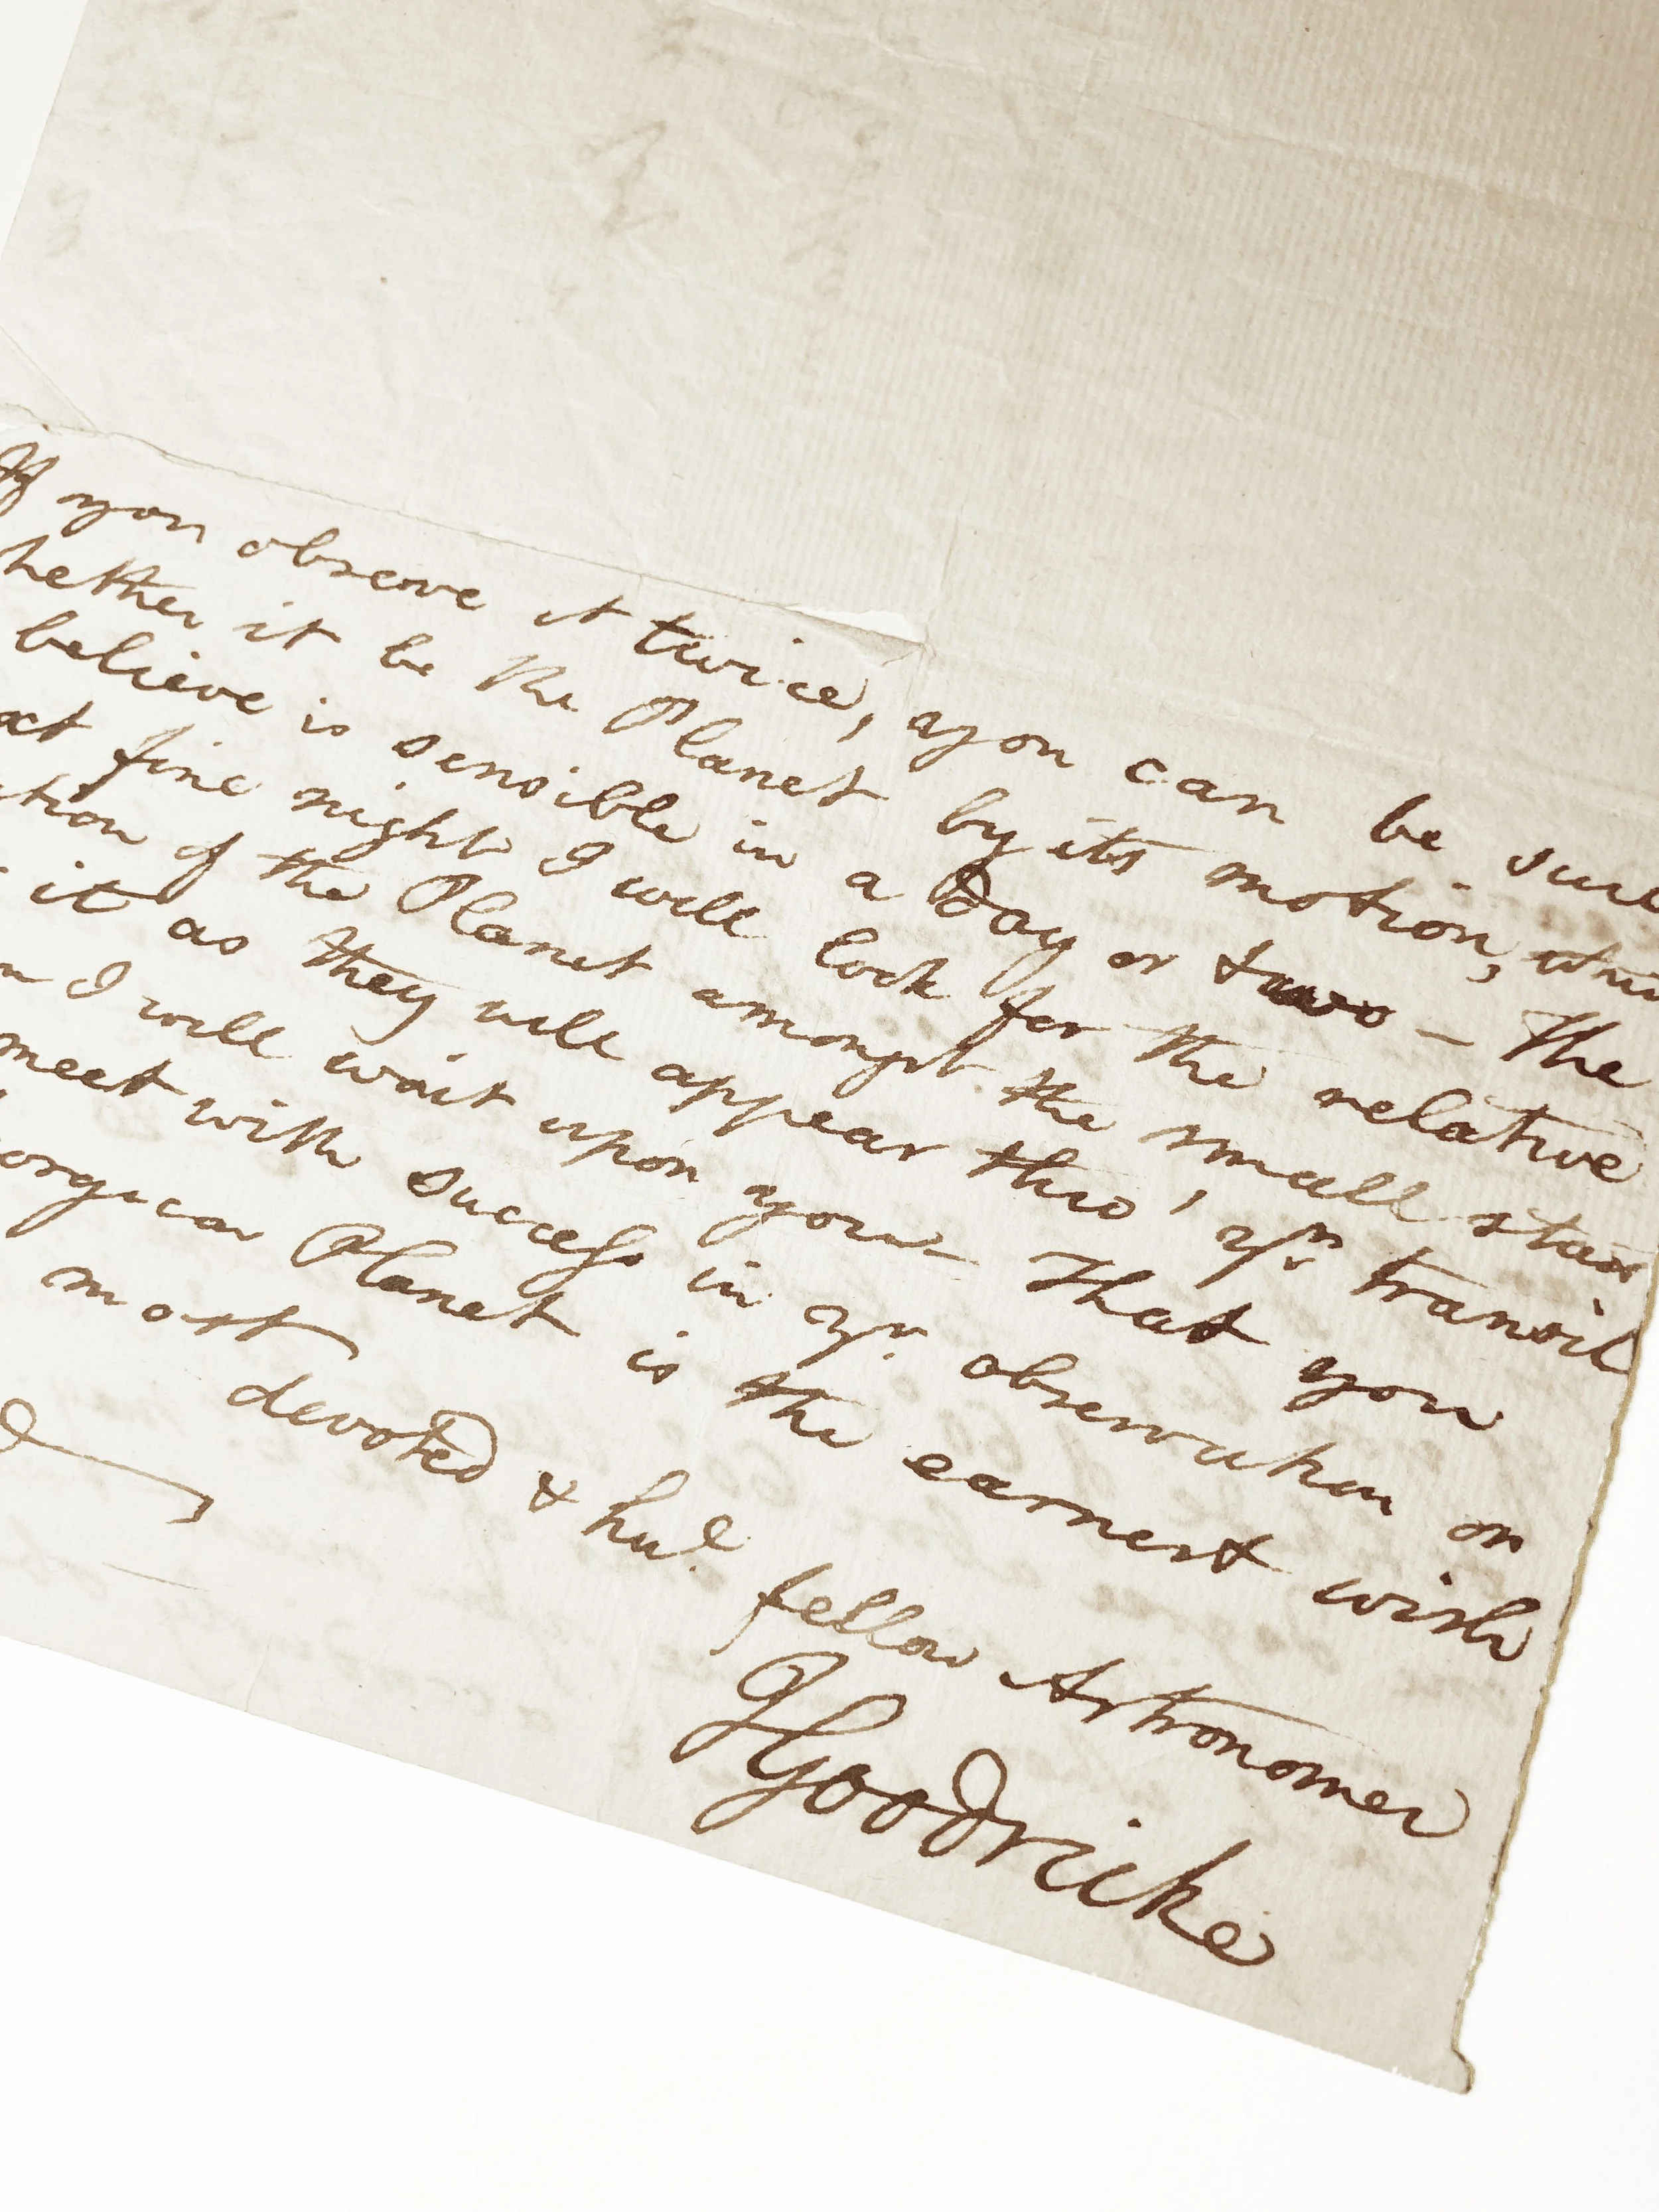 If you observe it twice, you can be sure
hether it be the Planet by its motion, whi
believe is sensible in a Day or two – The
ext fine night I will look for the relative
ation of the Planet amongst the small stars
it as they will appear thro' yr. transit
n I will wait upon you – That you
meet with success in yr. observation on
orgian Planet is the earnest wish
most devoted & hul. fellow Astronomer
JGoodricke